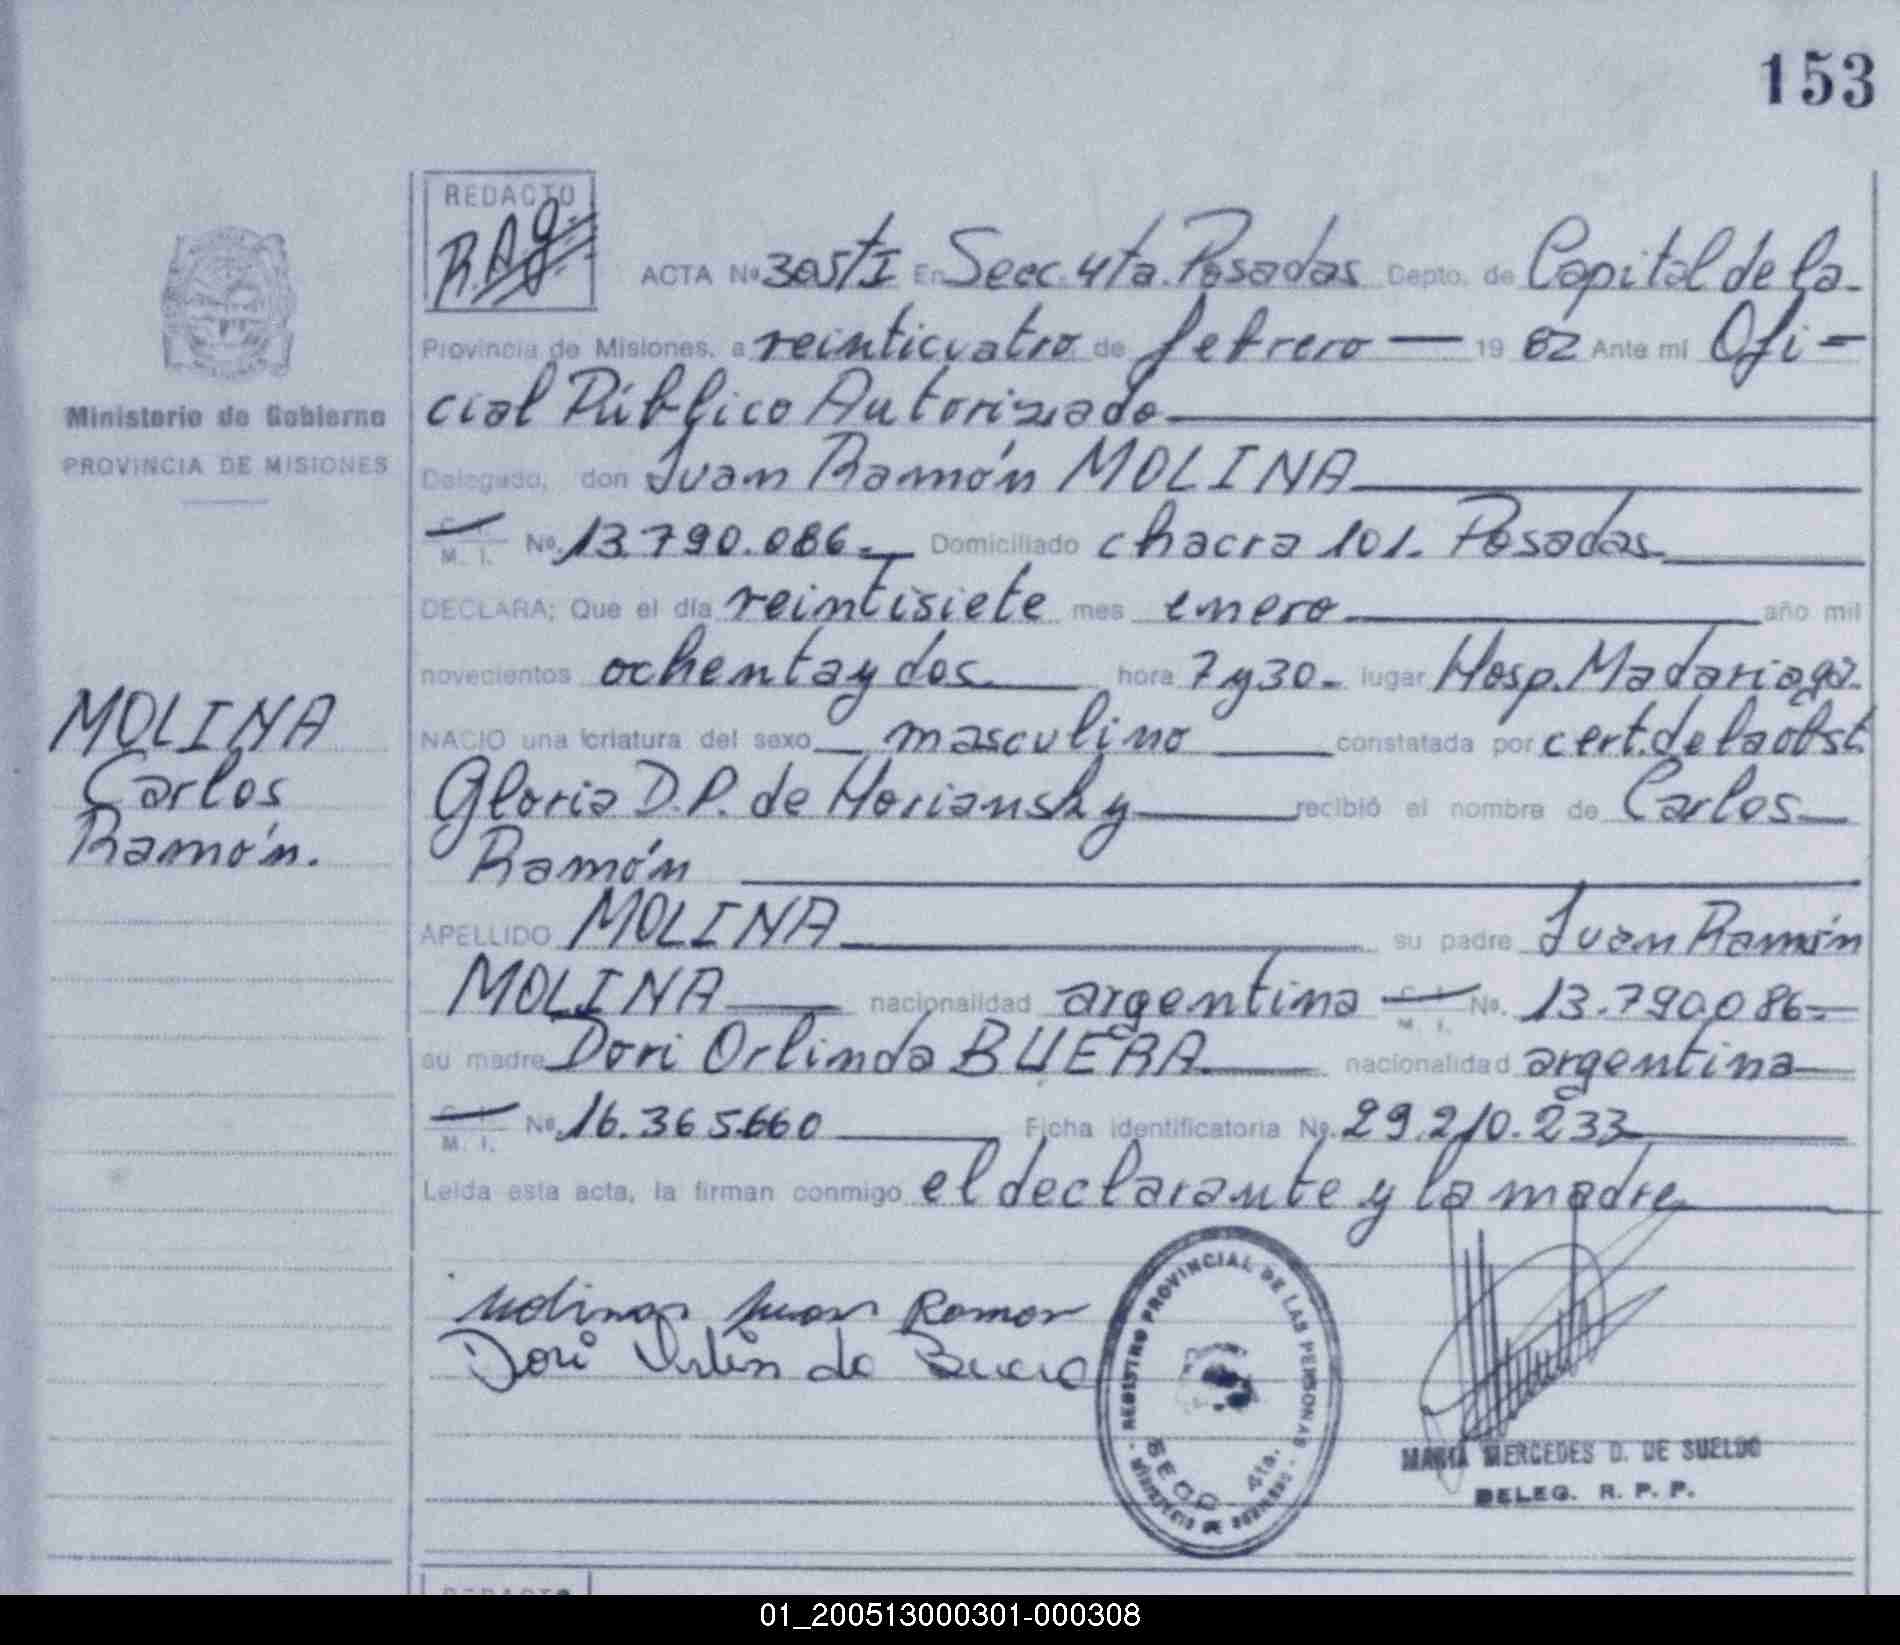 153
REDACTO
R.A.G.
ACTA Nº 305/I En Secc. 4ta. Posadas Depto. de Capital de la-
Provincia de Misiones, a veinticuatro de febrero — 19 82 Ante mi Ofi-
cial Público Autorizado
Ministerio de Gobierno
PROVINCIA DE MISIONES
Delegado, don Juan Ramón MOLINA
M. I. Nº 13.790.086.- Domiciliado chacra 101. Posadas
DECLARA; Que el día veintisiete mes enero año mil
novecientos ochenta y dos hora 7 y 30.- lugar Hosp. Madariaga.
NACIO una criatura del sexo masculino constatada por cert. de la obst.
Gloria D.P. de Horiansky recibió el nombre de Carlos
Ramón
MOLINA
Carlos
Ramón.
APELLIDO MOLINA su padre Juan Ramón
MOLINA nacionalidad argentina M. I. No. 13.790.086.-
su madre Dori Orlinda BUERA nacionalidad argentina
M. I. Nº 16.365.660 Ficha identificatoria Nº 29.210.233
Leída esta acta, la firman conmigo el declarante y la madre
Molinas Juan Ramon
Dori Orlin da Buera
REGISTRO PROVINCIAL DE LAS PERSONAS
SECC. 4ta.
MINISTERIO DE GOBIERNO
MARIA MERCEDES D. DE SUELDO
DELEG. R. P. P.
REDACTO
01_200513000301-000308